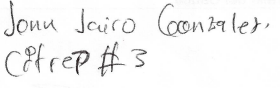 Jonn Jairo Gonzales.
Citrep # 3